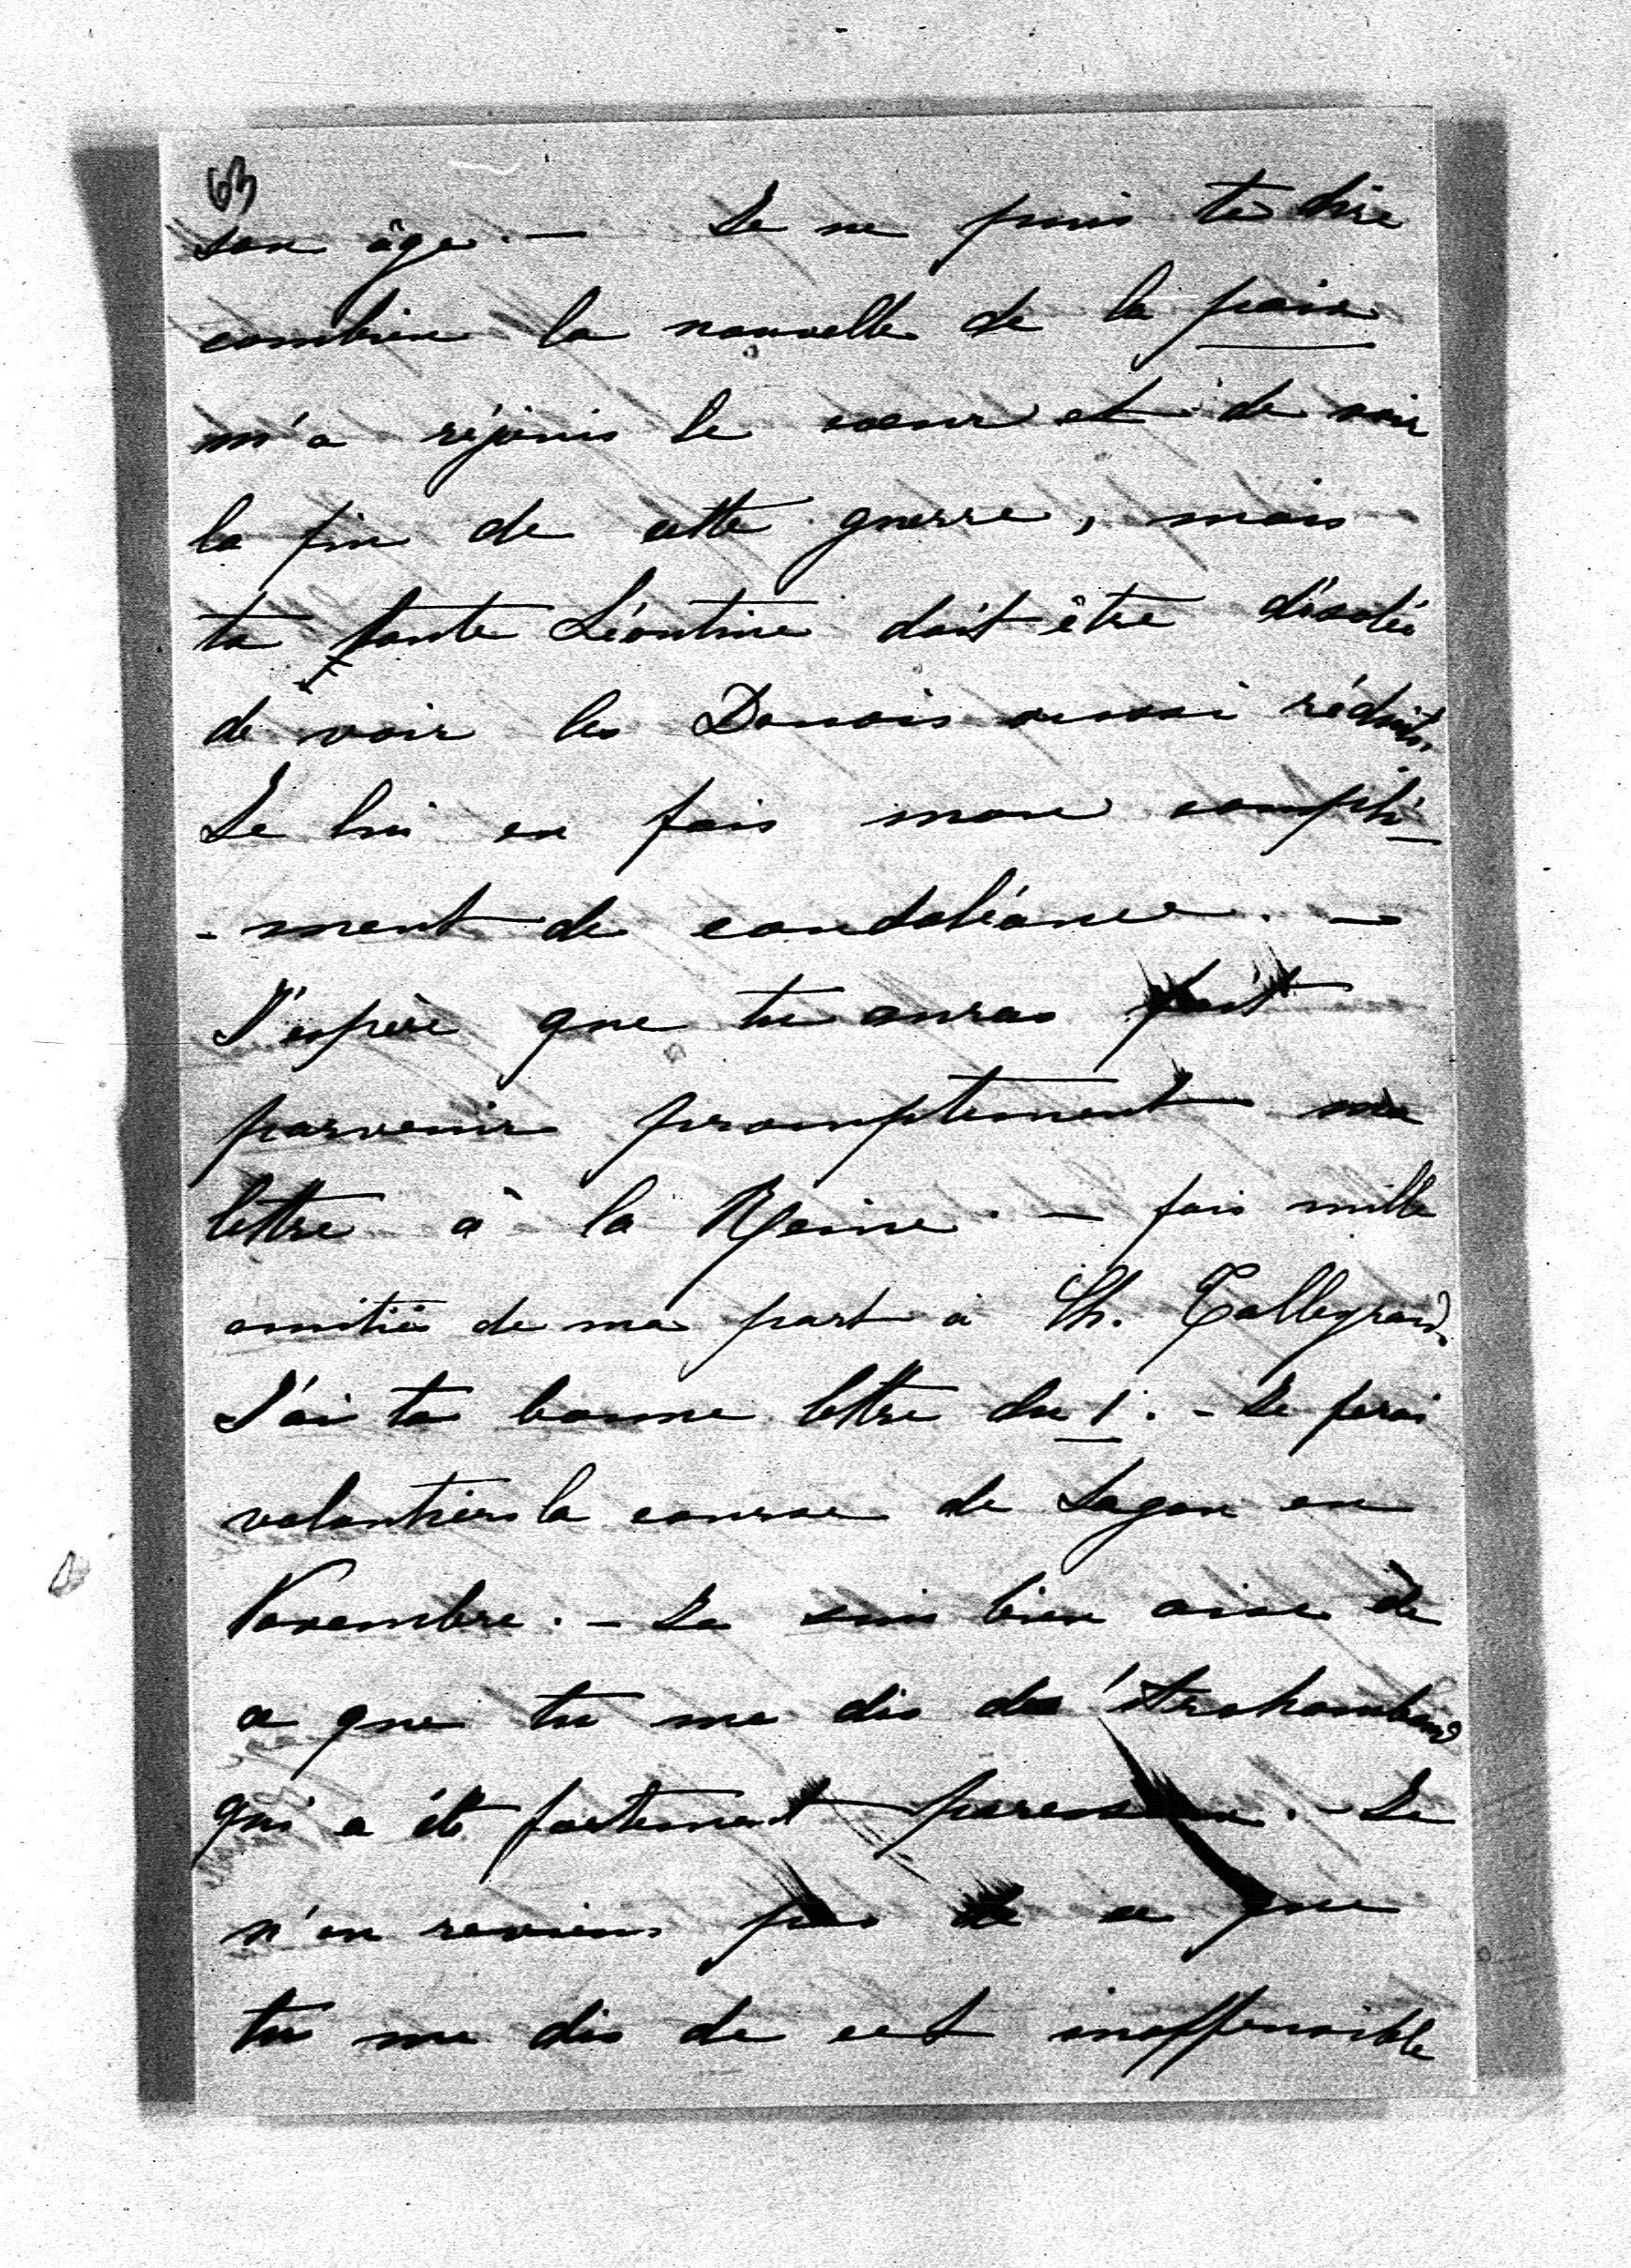 63
son âge. — Je ne puis te dire
combien la nouvelle de la paix
m'a réjouis le coeur et de voir
la fin de cette guerre, mais
ta tante Léontine doit être désolée
de voir les Danois aussi réduits.
Je lui en fais mon compli-
-ment de condoléance. —
J'espère que tu auras fait
parvenir promptement ma
lettre à la Reine. — fais mille
amitiés de ma part à Ch. Talleyrand.
J'ai ta bonne lettre du 1. — Je ferai
volontiers la course de Sagan en
Novembre. — Je suis bien aise de
ce que tu me dis de
qui a été fortement paresseux. — Je
n'en reviens pas de ce que
tu me dis de cet inoffensible